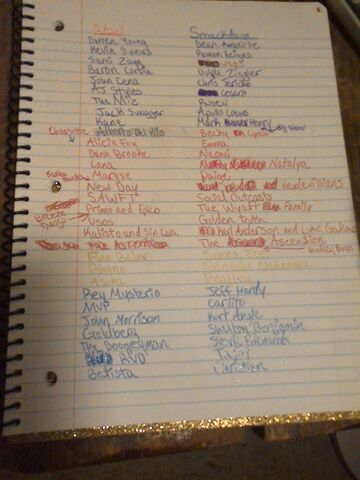 Smackdown
Darren Young Dean Ambrose
Kevin Owens Roman Reigns
Sami Zayn Usos
Baron Corbin Dolph Ziggler
John Cena Chris Jericho
AJ Styles Cesaro
The Miz Rusev
Jack Swagger Apollo Crews
Kane Mark Henry
Charlotte Alberto Del Rio Becky Lynch
Alicia Fox Emma
Dana Brooke Naomi
Lana Natalya
Maryse Paige
New Day Vaudevillians
SAWFT Social Outcasts
Primo and Epico The Wyatt Family
Breeze Usos Golden Truth
Kalisto and Sin Cara Karl Anderson and Luke Gallows
The Ascension
Finn Balor
Rhyno
Asuka Bayley
Rey Mysterio Jeff Hardy
MVP Carlito
John Morrison Kurt Angle
Goldberg Shelton Benjamin
The Boogeyman Stevie Richards
RVD Tajiri
Batista